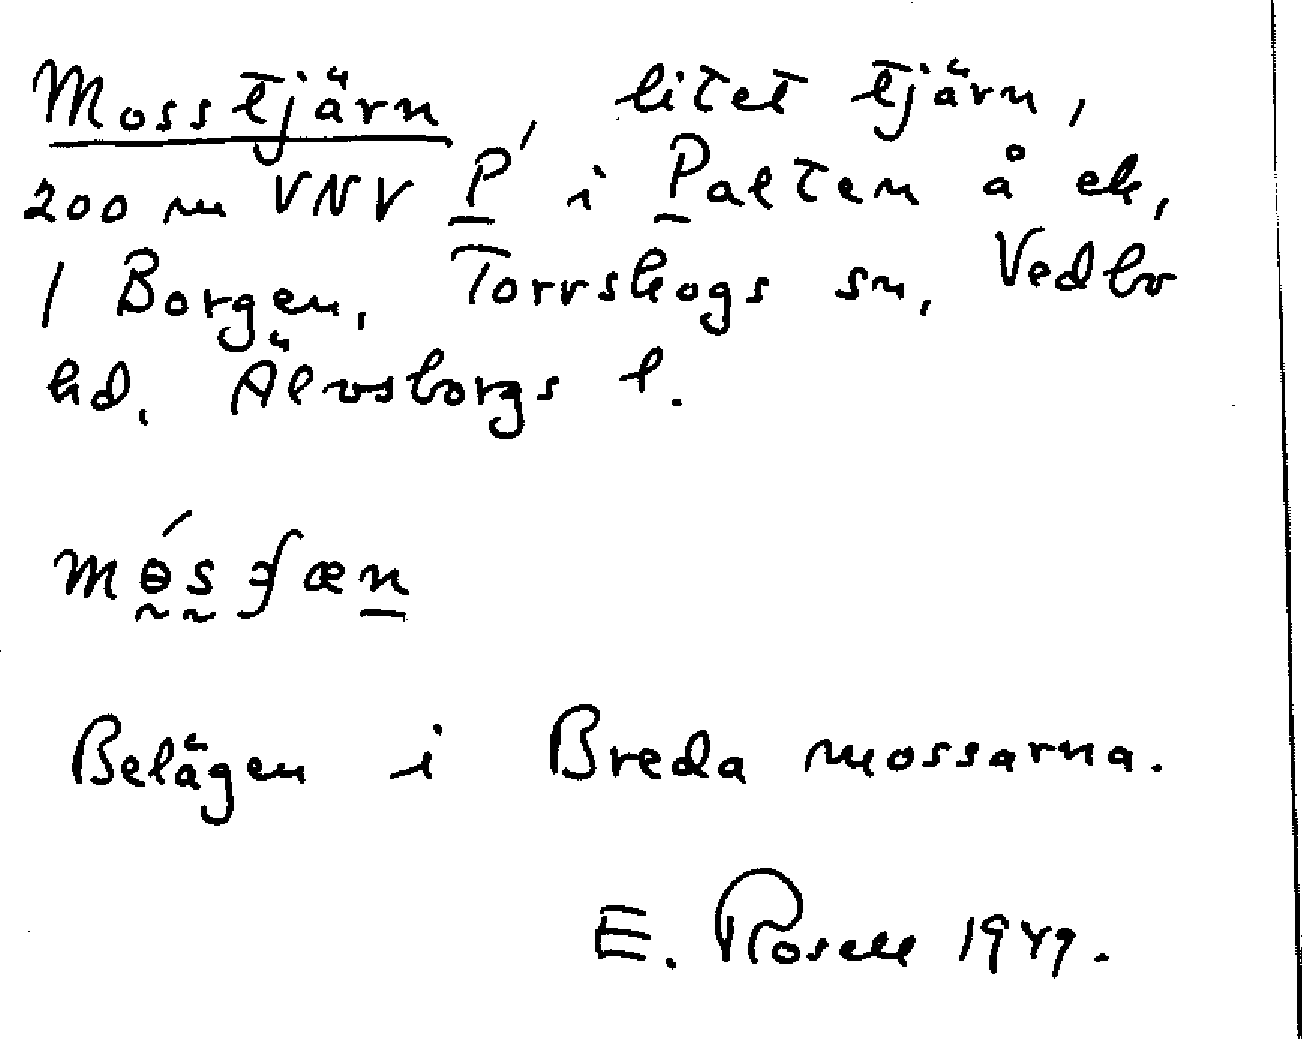 Mosstjärn, litet tjärn,
200 m VNV P i Palten å ek,
1 Borgen, Torrskogs sn, Vedbo
hd, Älvsborgs l.
Belägen i Breda mossarna.
E. Rosell 1949.